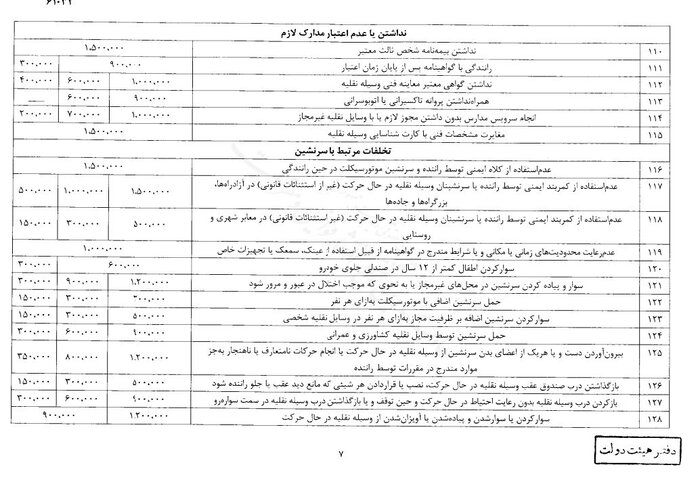 ۶۱۰۲۲
نداشتن یا عدم اعتبار مدارک لازم
۱۱۰ نداشتن بیمه‌نامه شخص ثالث معتبر ۱،۵۰۰،۰۰۰
۱۱۱ رانندگی با گواهینامه پس از پایان زمان اعتبار ۹۰۰،۰۰۰ ۳۰۰،۰۰۰
۱۱۲ نداشتن گواهی معتبر معاینه فنی وسیله نقلیه ۱،۰۰۰،۰۰۰ ۶۰۰،۰۰۰ ۴۰۰،۰۰۰
۱۱۳ همراه‌نداشتن پروانه تاکسیرانی یا اتوبوسرانی ۹۰۰،۰۰۰ ۶۰۰،۰۰۰
۱۱۴ انجام سرویس مدارس بدون داشتن مجوز لازم یا با وسایل نقلیه غیرمجاز ۱،۰۰۰،۰۰۰ ۷۰۰،۰۰۰ ۲۰۰،۰۰۰
۱۱۵ مغایرت مشخصات فنی با کارت شناسایی وسیله نقلیه ۱،۵۰۰،۰۰۰
تخلفات مرتبط با سرنشین
۱۱۶ عدم‌استفاده از کلاه ایمنی توسط راننده و سرنشین موتورسیکلت در حین رانندگی ۱،۵۰۰،۰۰۰
۱۱۷ عدم‌استفاده از کمربند ایمنی توسط راننده یا سرنشینان وسیله نقلیه در حال حرکت (غیر از استثنائات قانونی) در آزادراه‌ها، ۱،۵۰۰،۰۰۰ ۱،۰۰۰،۰۰۰ ۵۰۰،۰۰۰
بزرگراه‌ها و جاده‌ها
۱۱۸ عدم‌استفاده از کمربند ایمنی توسط راننده یا سرنشینان وسیله نقلیه در حال حرکت (غیر استثنائات قانونی) در معابر شهری و ۵۰۰،۰۰۰ ۳۰۰،۰۰۰ ۱۵۰،۰۰۰
روستایی
۱۱۹ عدم‌رعایت محدودیت‌های زمانی یا مکانی و یا شرایط مندرج در گواهینامه از قبیل استفاده از عینک، سمعک یا تجهیزات خاص ۱،۰۰۰،۰۰۰
۱۲۰ سوارکردن اطفال کمتر از ۱۲ سال در صندلی جلوی خودرو ۶۰۰،۰۰۰ ۳۰۰،۰۰۰
۱۲۱ سوار و پیاده کردن سرنشین در محل‌های غیرمجاز یا به نحوی که موجب اختلال در عبور و مرور شود ۱،۲۰۰،۰۰۰ ۹۰۰،۰۰۰ ۳۰۰،۰۰۰
۱۲۲ حمل سرنشین اضافی با موتورسیکلت به‌ازای هر نفر ۳۰۰،۰۰۰ ۱۵۰،۰۰۰
۱۲۳ سوارکردن سرنشین اضافه بر ظرفیت مجاز به‌ازای هر نفر در وسایل نقلیه شخصی ۵۰۰،۰۰۰ ۳۰۰،۰۰۰ ۱۵۰،۰۰۰
۱۲۴ حمل سرنشین توسط وسایل نقلیه کشاورزی و عمرانی ۹۰۰،۰۰۰ ۶۰۰،۰۰۰ ۳۰۰،۰۰۰
۱۲۵ بیرون‌آوردن دست و یا هریک از اعضای بدن سرنشین از وسیله نقلیه در حال حرکت یا انجام حرکات نامتعارف یا ناهنجار به‌جز ۱،۲۰۰،۰۰۰ ۸۰۰،۰۰۰ ۳۵۰،۰۰۰
موارد مندرج در مقررات توسط راننده
۱۲۶ بازگذاشتن درب صندوق عقب وسیله نقلیه در حال حرکت، نصب یا قراردادن هر شیئی که مانع دید عقب یا جلو راننده شود ۵۰۰،۰۰۰ ۳۰۰،۰۰۰ ۱۵۰،۰۰۰
۱۲۷ بازکردن درب وسیله نقلیه بدون رعایت احتیاط در حال حرکت و حین توقف و یا بازگذاشتن درب وسیله نقلیه در سمت سواره‌رو ۹۰۰،۰۰۰ ۶۰۰،۰۰۰ ۳۰۰،۰۰۰
۱۲۸ سوارکردن یا سوارشدن و پیاده‌شدن یا آویزان‌شدن از وسیله نقلیه در حال حرکت ۱،۲۰۰،۰۰۰ ۹۰۰،۰۰۰
۷
دفتر هیئت دولت